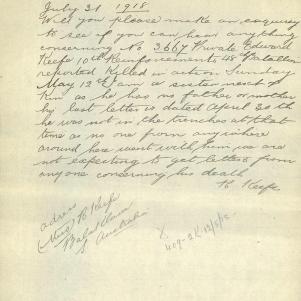 July 31 1918.
Will you please make an enquiry
to see if you can hear anything
concerning No 3667 Private Edward
Keefe 10th Reinforcements 48th Battalion
reported Killed in action Sunday
May 12th I am a sister next of
kin as he has no father or mother
his last letter is dated April 20th
he was not in the trenches at that
time as no one from anywhere
around here went with him, we are
not expecting to get letters from
anyone concerning his death
H Keefe
adress
(Miss) H Keefe
Balaklava
S Australia